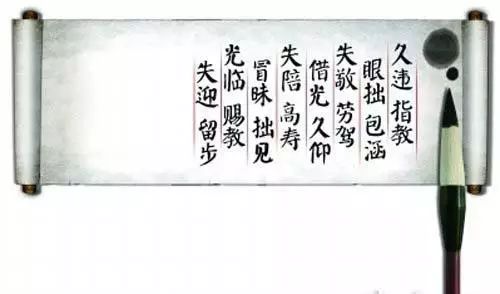 久违 指教
眼拙 包涵
失敬 劳驾
借光 久仰
失陪 高寿
冒昧 拙见
光临 赐教
失迎 留步